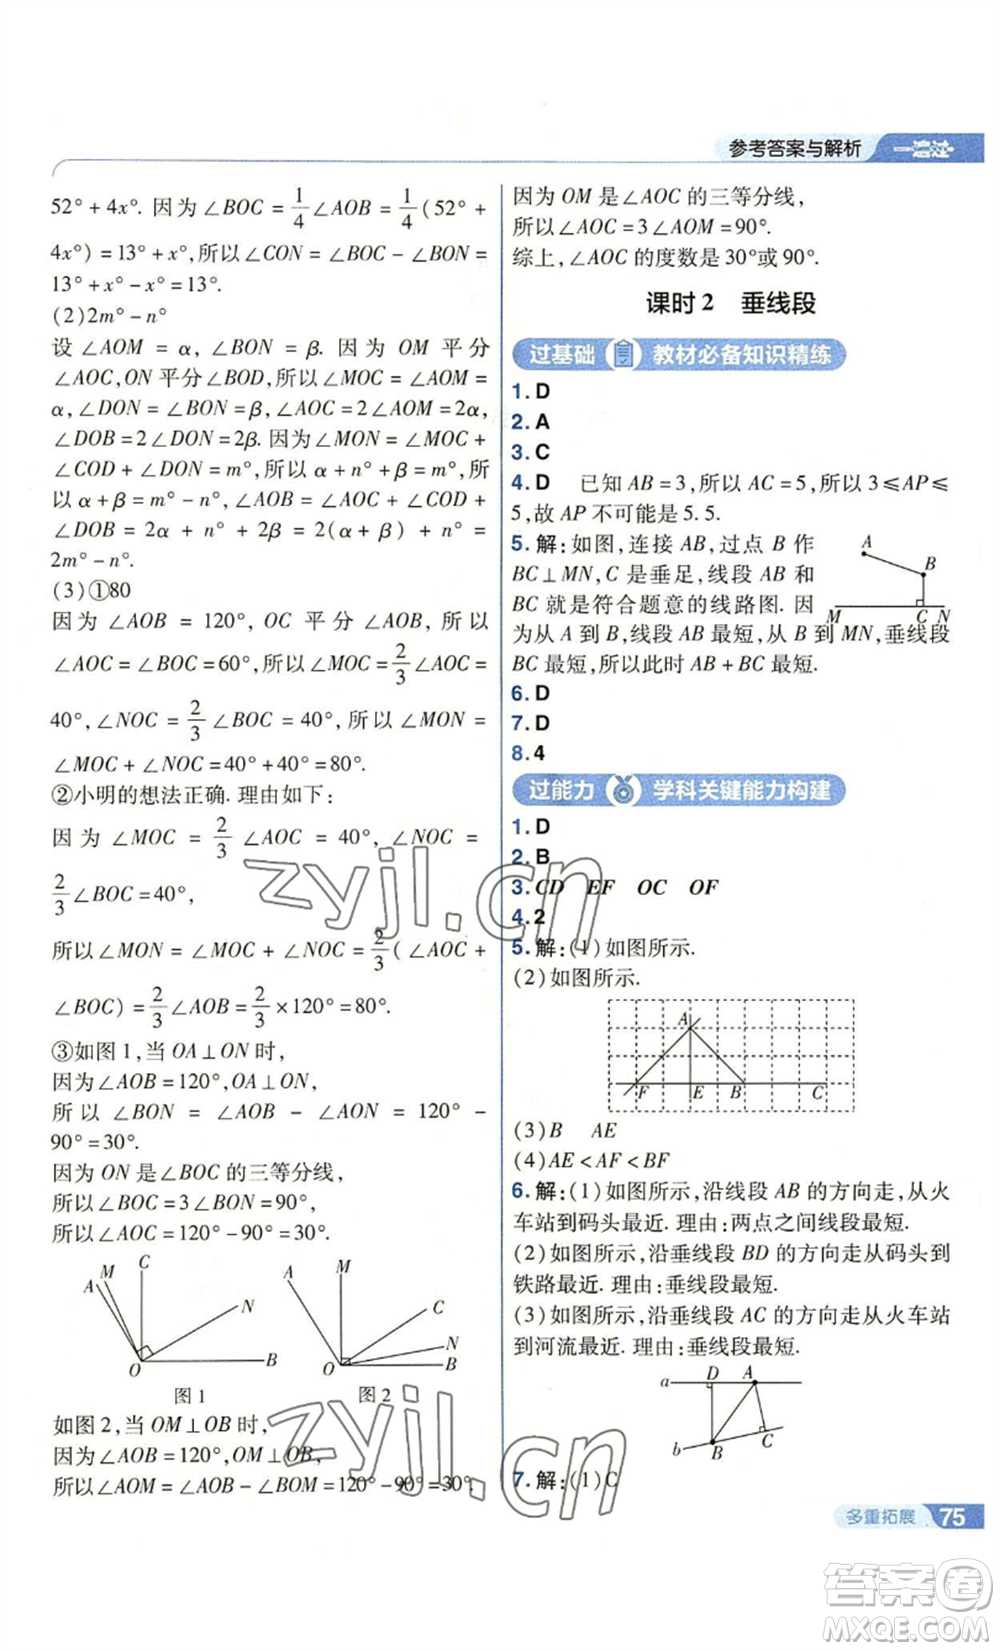 参考答案与解析 一遍过
52° + 4x°. 因为∠BOC = 1/4∠AOB = 1/4(52° +
4x°) = 13° + x°,所以∠CON = ∠BOC - ∠BON =
13° + x° - x° = 13°.
(2)2m° - n°
设∠AOM = α,∠BON = β. 因为 OM 平分
∠AOC,ON 平分∠BOD,所以∠MOC = ∠AOM =
α,∠DON = ∠BON = β,∠AOC = 2∠AOM = 2α,
∠DOB = 2∠DON = 2β. 因为∠MON = ∠MOC +
∠COD + ∠DON = m°,所以 α + n° + β = m°,所
以 α + β = m° - n°,∠AOB = ∠AOC + ∠COD +
∠DOB = 2α + n° + 2β = 2(α + β) + n° =
2m° - n°.
(3)①80
因为∠AOB = 120°,OC 平分∠AOB,所以
∠AOC = ∠BOC = 60°,所以∠MOC = 2/3∠AOC =
40°,∠NOC = 2/3∠BOC = 40°,所以∠MON =
∠MOC + ∠NOC = 40° + 40° = 80°.
②小明的想法正确. 理由如下:
因为∠MOC = 2/3∠AOC = 40°,∠NOC =
2/3∠BOC = 40°,
所以∠MON = ∠MOC + ∠NOC = 2/3(∠AOC +
∠BOC) = 2/3∠AOB = 2/3 × 120° = 80°.
③如图 1,当 OA⊥ON 时,
因为∠AOB = 120°,OA⊥ON,
所以∠BON = ∠AOB - ∠AON = 120° -
90° = 30°.
因为 ON 是∠BOC 的三等分线,
所以∠BOC = 3∠BON = 90°,
所以∠AOC = 120° - 90° = 30°.
A M C N O B
图 1
A M C N B O
图 2
如图 2,当 OM⊥OB 时,
因为∠AOB = 120°,OM⊥OB,
所以∠AOM = ∠AOB - ∠BOM = 120° - 90° = 30°.
因为 OM 是∠AOC 的三等分线,
所以∠AOC = 3∠AOM = 90°.
综上,∠AOC 的度数是 30°或 90°.
课时 2 垂线段
过基础 教材必备知识精练
1. D
2. A
3. C
4. D 已知 AB = 3,所以 AC = 5,所以 3 ≤ AP ≤
5,故 AP 不可能是 5. 5.
5. 解:如图,连接 AB,过点 B 作
BC⊥MN,C 是垂足,线段 AB 和
BC 就是符合题意的线路图. 因
为从 A 到 B,线段 AB 最短,从 B 到 MN,垂线段
BC 最短,所以此时 AB + BC 最短.
A B M C N
6. D
7. D
8. 4
过能力 学科关键能力构建
1. D
2. B
3. CD EF OC OF
4. 2
5. 解:(1)如图所示.
(2)如图所示.
A F E B C
(3)B AE
(4)AE < AF < BF
6. 解:(1)如图所示,沿线段 AB 的方向走,从火
车站到码头最近. 理由:两点之间线段最短.
(2)如图所示,沿垂线段 BD 的方向走从码头到
铁路最近. 理由:垂线段最短.
(3)如图所示,沿垂线段 AC 的方向走从火车站
到河流最近. 理由:垂线段最短.
a D A b B C
7. 解:(1)C
多重拓展 75
zyjl.cn
zyjl.cn
答案圈
MXQE.COM